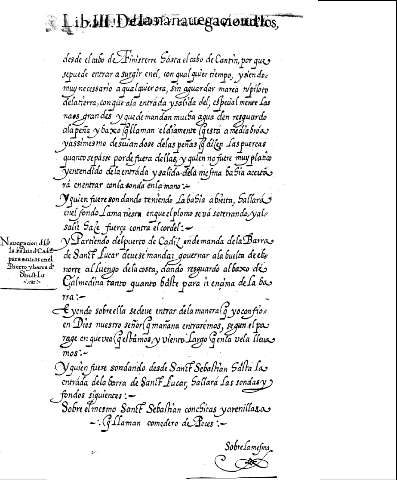 Lib. III. De la navegacion de los,
desde el cabo de Finisterre hasta el cabo de Cantin, por que
se puede entrar a surgir en el, con qualquier tiempo, y siendo
muy necessario a qualquer ora, sin aguardar marea ni piloto
de la tierra, con que a la entrada y salida del, especial mente las
naos grandes y que demandan mucha agua den resguardo
a la peña y baxo q̃ llaman el diamente q̃ esta a media bro
y assimesmo desviandose de las peñas q̃ dizen Las puercas
quanto se passe por de fuera dellas, y quien no fuere muy platico
y entendido de la entrada y salida de la mesma bahia acerca
rá en entrar con la sonda en la mano:~
Y quien fuere sondando teniendo La bahia abierta, hallará
en el fondo Lama tiesta en que el plomo se va soterrando, y al
salir haze fuerça contra el cordel:
Y Partiendo del puerto de Cadiz en demanda de la Barra
de Sanct Lucar deue se mandar governar a la buelta de el
norte al luengo de la costa, dando resguardo al baxo de
Galmedina tanto quanto baste para ir en çima de la ba
rra:~
Navegacion desde
la
para entrar en el
Puerto y barra de
Eyendo sobre ella se deve entrar de la manera q̃ yo confio
en Dios nuestro señor q̃ mañana entraremos, segun el pa
rage en que veo q̃ estamos, y viento Largo q̃ en la vela lleua
mos:~
Y quien fuere sondando desde Sanct Sebastian hasta la
entrada de la barra de Sanct Lucar, hallará Las sondas y
fondos siguientes:~
Sobre el mesmo Sanct Sebastian conchitas y arenillas a
q̃ llaman comedero de Peces:~
Sobre la mesma